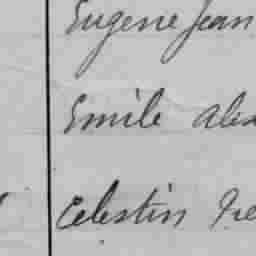 Eugene Jean
Emile Alex
Celestin Fre